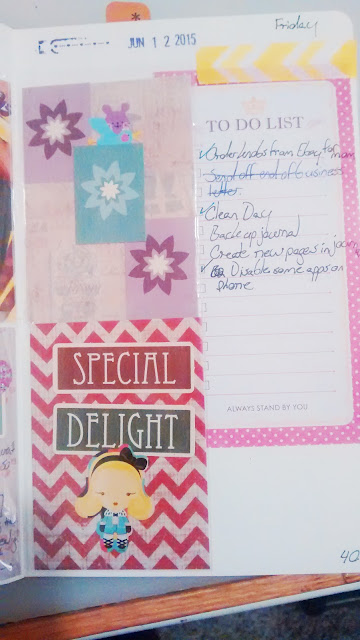 Friday
JUN 1 2 2015
TO DO LIST
Order from Ebay for mom
Send off end of business
letter.
Clean Day
Back up journal
Create new pages in journal
Disable some apps on
phone
SPECIAL
DELIGHT
ALWAYS STAND BY YOU
40